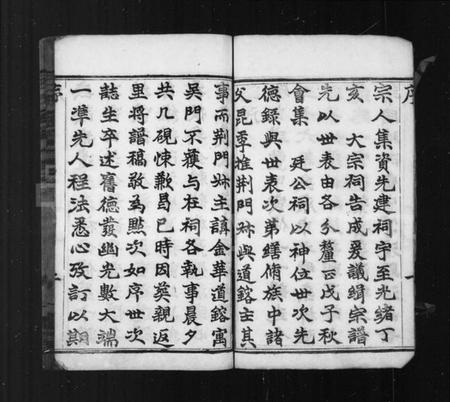 序
宗人集資先建祠宇至光緒丁
亥 大宗祠告成爰議緝宗譜
先以世表由各分釐正戊子秋
會集 廷公祠以神位世次先
德錄與世表次第繕脩族中諸
父昆季惟荆門 與道鎔主其
事而荆門 主滇金華道鎔寓
吳門不獲与在祠各執事晨夕
共几硯悚歉曷已時因奠親返
里将譜稿敬為㸃次如序世次
誌生卒述舊德發幽光數大端
一準先人程法悉心攷訂以期
序